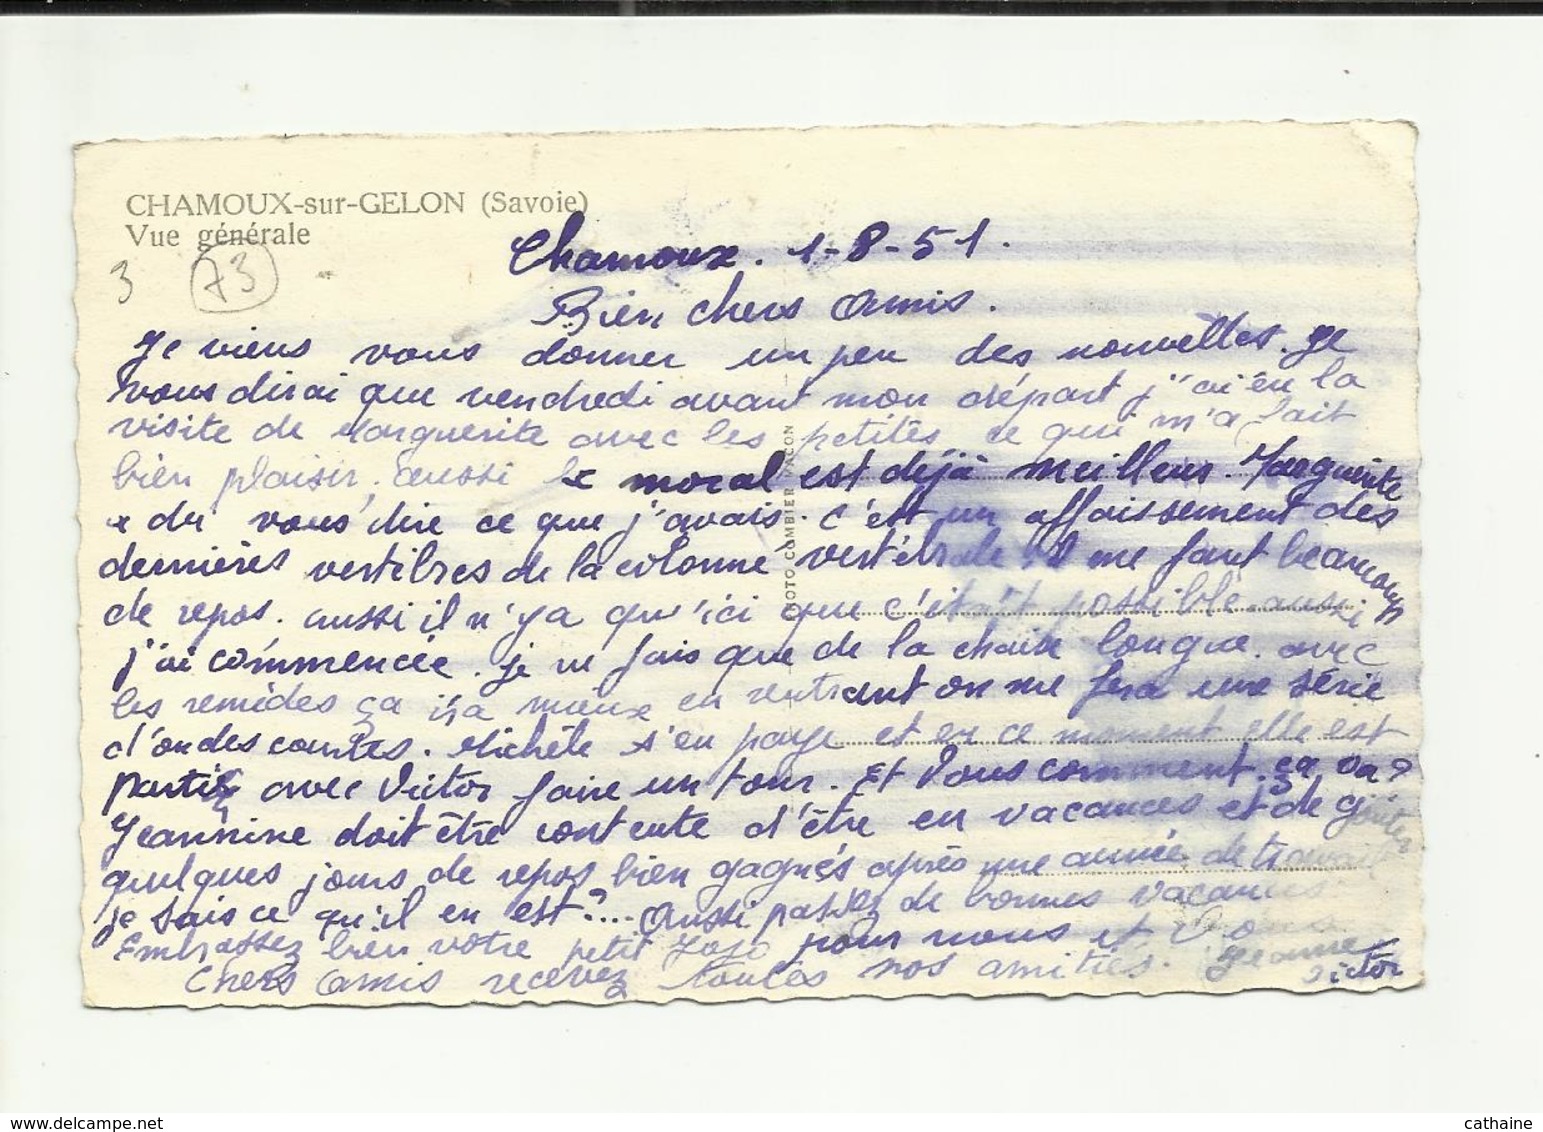 CHAMOUX-sur-GELON (Savoie)
Vue générale
3 73
Chamoux. 1-8-51.
Bien chers Amis.
Je viens vous donner un peu des nouvelles. Je
vous dirai que vendredi avant mon départ j'ai eu la
visite de Marguerite avec les petites ce qui m'a fait
bien plaisir, aussi le moral est déjà meilleur. Marguerite
a du vous dire ce que j'avais. c'est un affaissement des
dernières vertèbres de la colonne vertébrale. il me faut beaucoup
de repos. aussi il n'y a qu'ici que c'était possible. aussi
j'ai commencée. je ne fais que de la chaise longue. avec
les remèdes ça ira mieux en rentrant on me fera une série
d'ondes courtes. Michèle s'en paye et en ce moment elle est
partie avec Victor faire un tour. Et Vous comment ça va?
Jeannine doit être contente d'être en vacances et de goûter
quelques jours de repos bien gagnés après une année de travail
je sais ce qu'il en est?... Aussi passez de bonnes vacances
Embrassez bien votre petit Jojo pour nous et Vous
Chers Amis recevez toutes nos amitiés. Jeanne
Victor
PHOTO COMBIER MACON
www.delcampe.net
cathaine